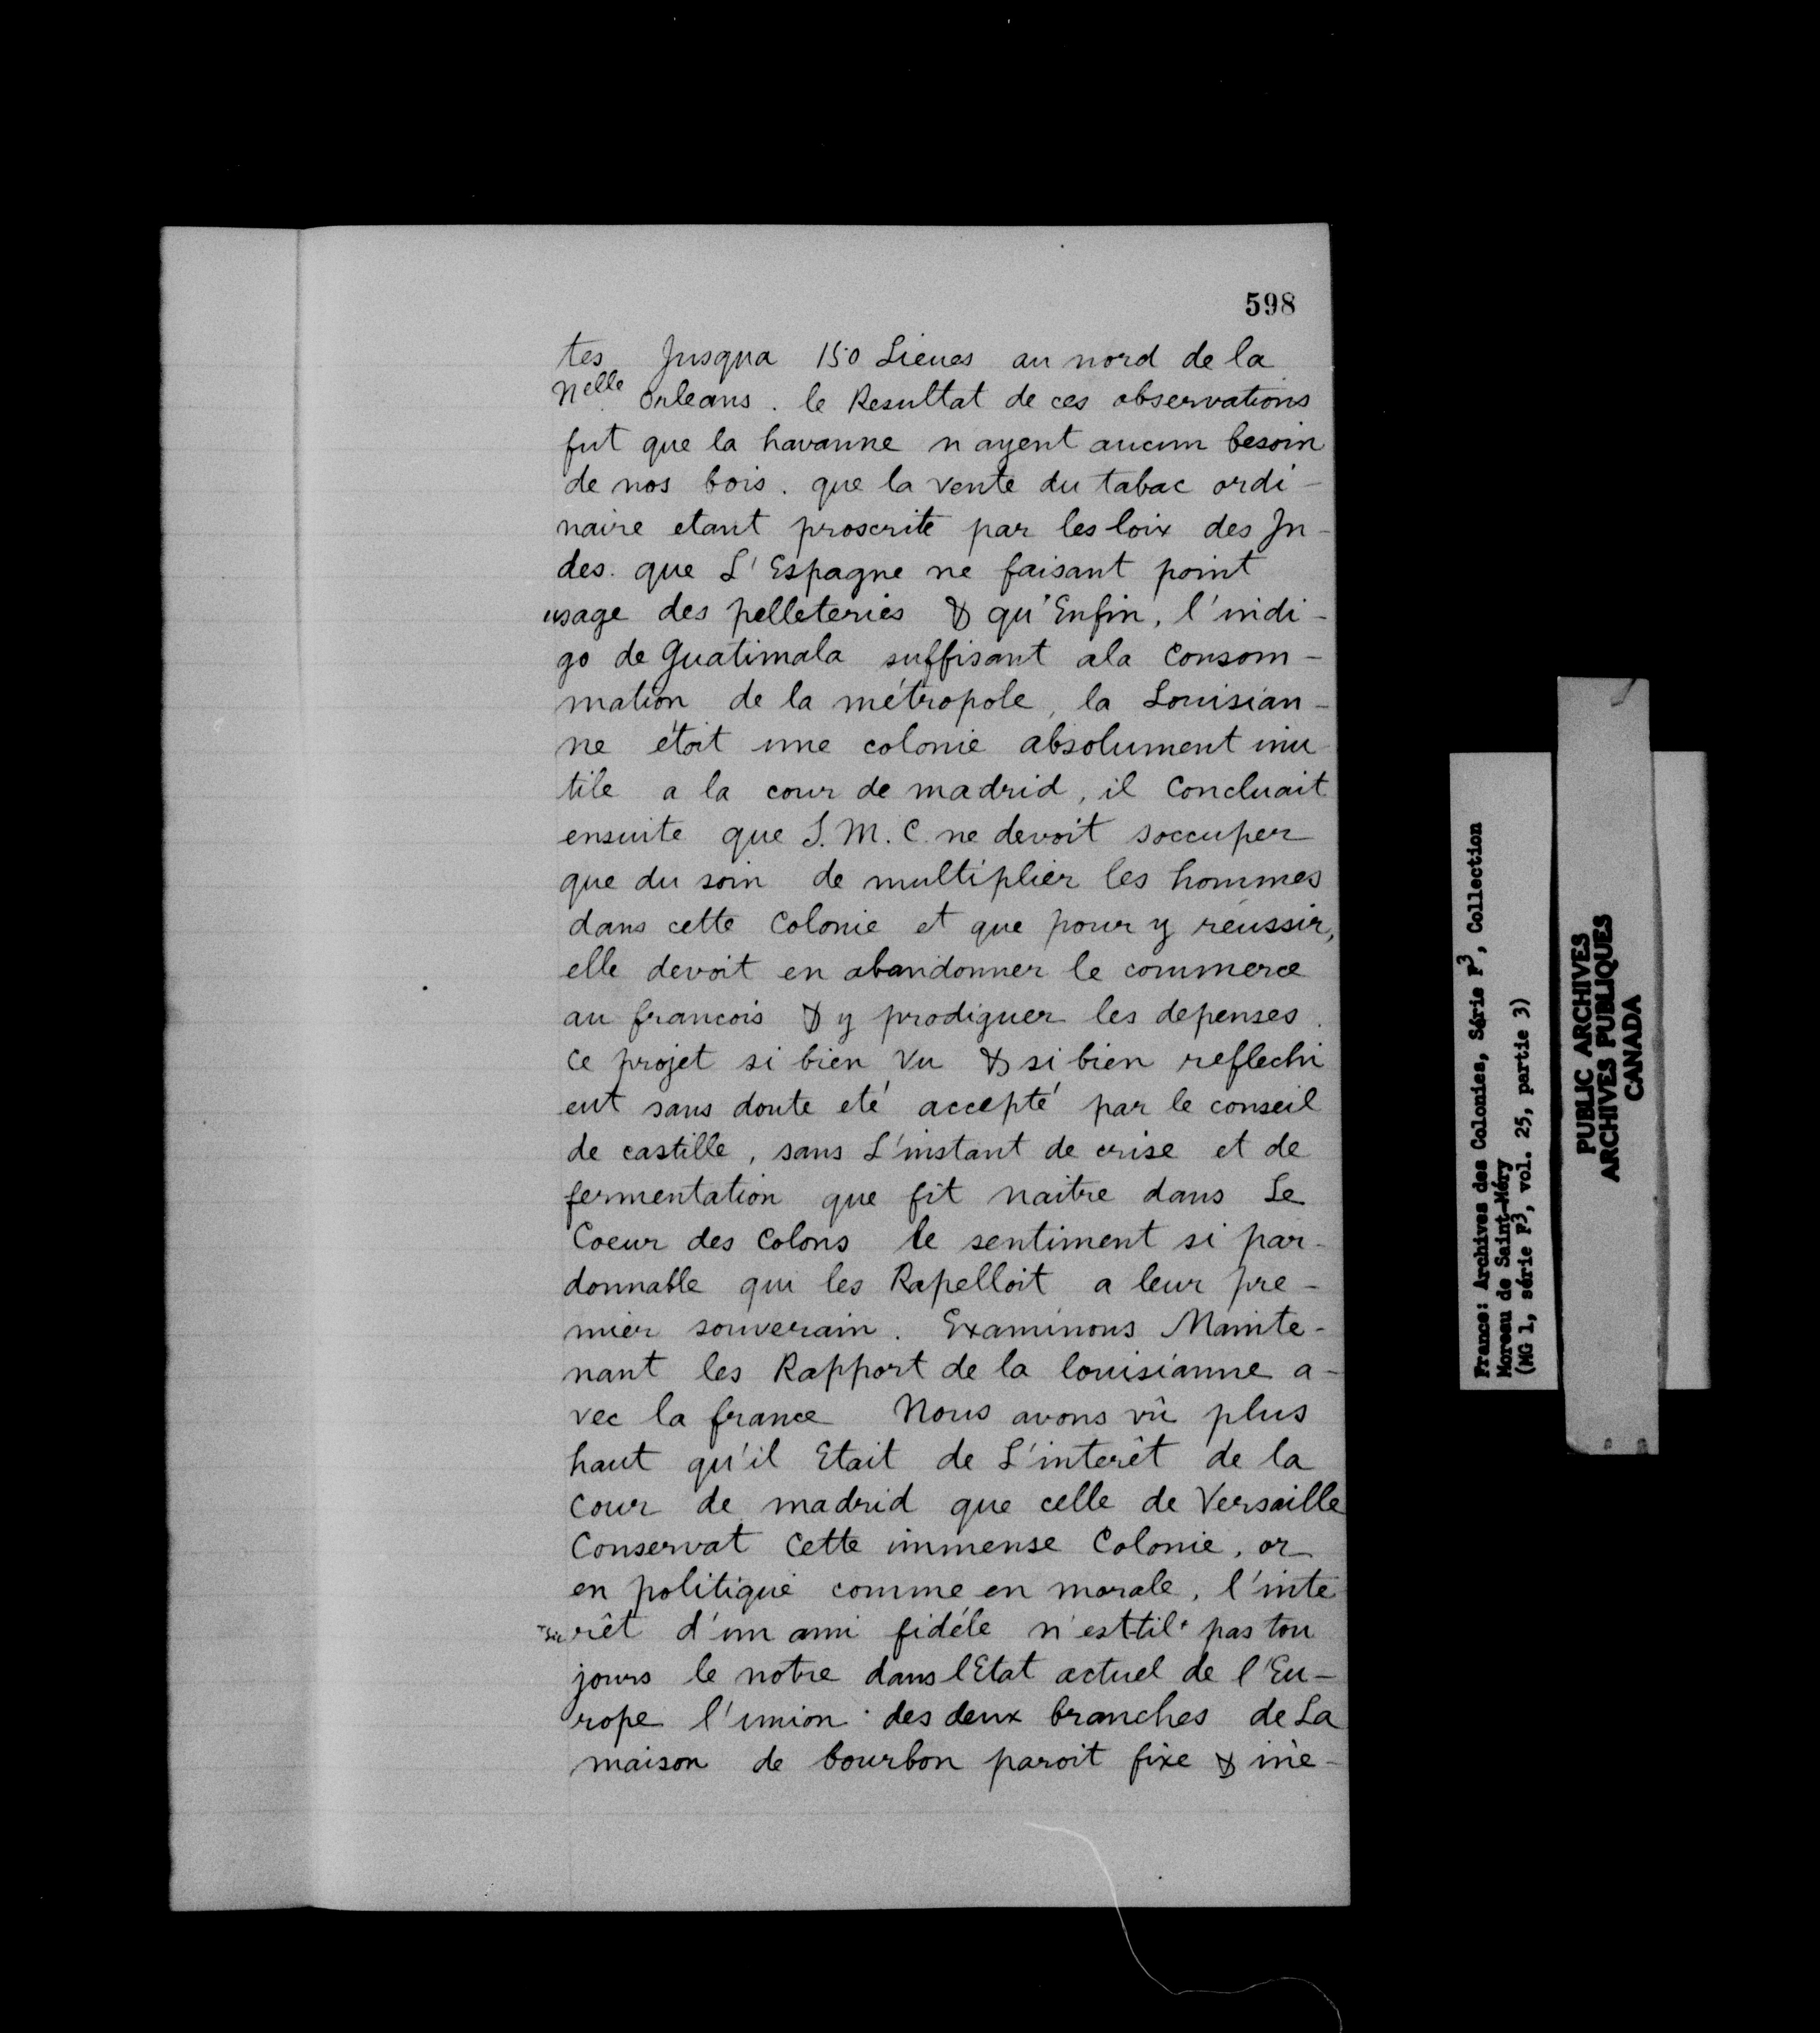 598
tes Jusqua 150 Lieues au nord de la
Nelle Orleans. le Resultat de ces observations
fut que la havanne n ayent aucun besoin
de nos bois. que la vente du tabac ordi-
naire etant proscrite par les loix des In-
des. que L'Espagne ne faisant point
usage des pelleteries & qu'Enfin, l'indi-
go de Guatimala suffisant ala Consom-
mation de la métropole, la Louisian-
ne étoit une colonie absolument inu
tile a la cour de madrid, il Concluait
ensuite que S. M. C. ne devoit soccuper
que du soin de multiplier les hommes
dans cette Colonie et que pour y réussir,
elle devoit en abandonner le commerce
au francois & y prodiguer les depenses.
Ce projet si bien vu & si bien reflechi
eut sans doute eté accepté par le conseil
de castille, sans L'instant de crise et de
fermentation que fit naitre dans Le
Coeur des Colons le sentiment si par-
donnable qui les Rapelloit a leur pre-
mier souverain. Examinons Mainte-
nant les Rapport de la louisianne a-
vec la france Nous avons vû plus
haut qu'il Etait de L'interêt de la
Cour de madrid que celle de Versaille
Conservat Cette immense Colonie, or
en politique comme en morale, l'inte
*sic rêt d'un ami fidéle n'est-til* pas tou
jours le notre dans l'Etat actuel de l'Eu-
rope l'union des deux branches de La
maison de bourbon paroit fixe & iné-
France: Archives des Colonies, Série F3, Collection
Moreau de Saint-Méry
(MG 1, série F3, vol. 25, partie 3)
PUBLIC ARCHIVES
ARCHIVES PUBLIQUES
CANADA